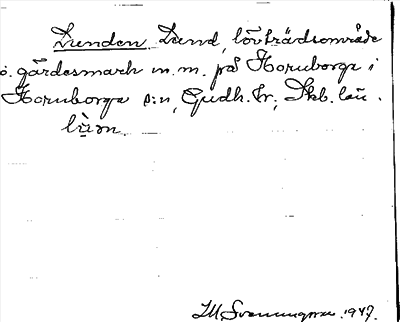 Lunden Lund, lövträdsområde
o. gärdesmark m.m. på Hornborga i
Hornborga s:n, Gudh. hr, Skb. län.
lùn.
1947.